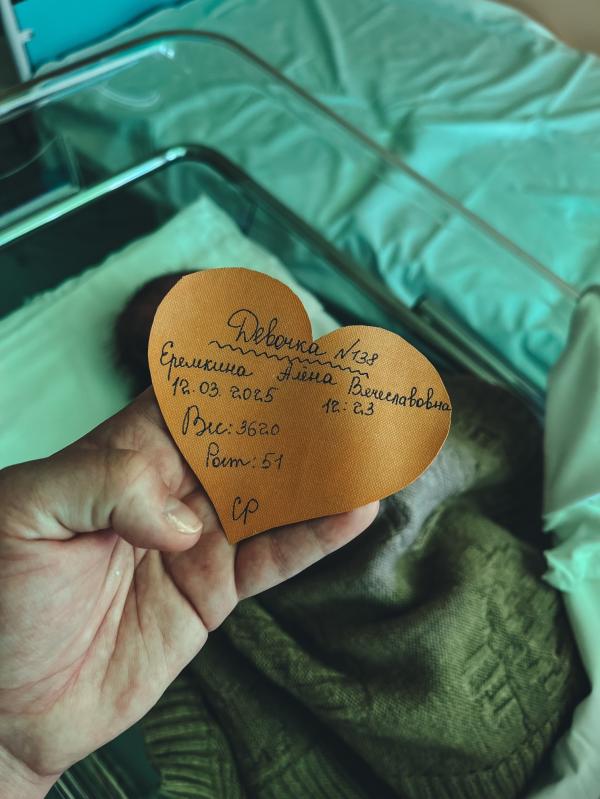 Девочка №138
Еремкина Алёна Вячеславовна
12.03.2025 12:23
Вис: 3620
Рост: 51
СР